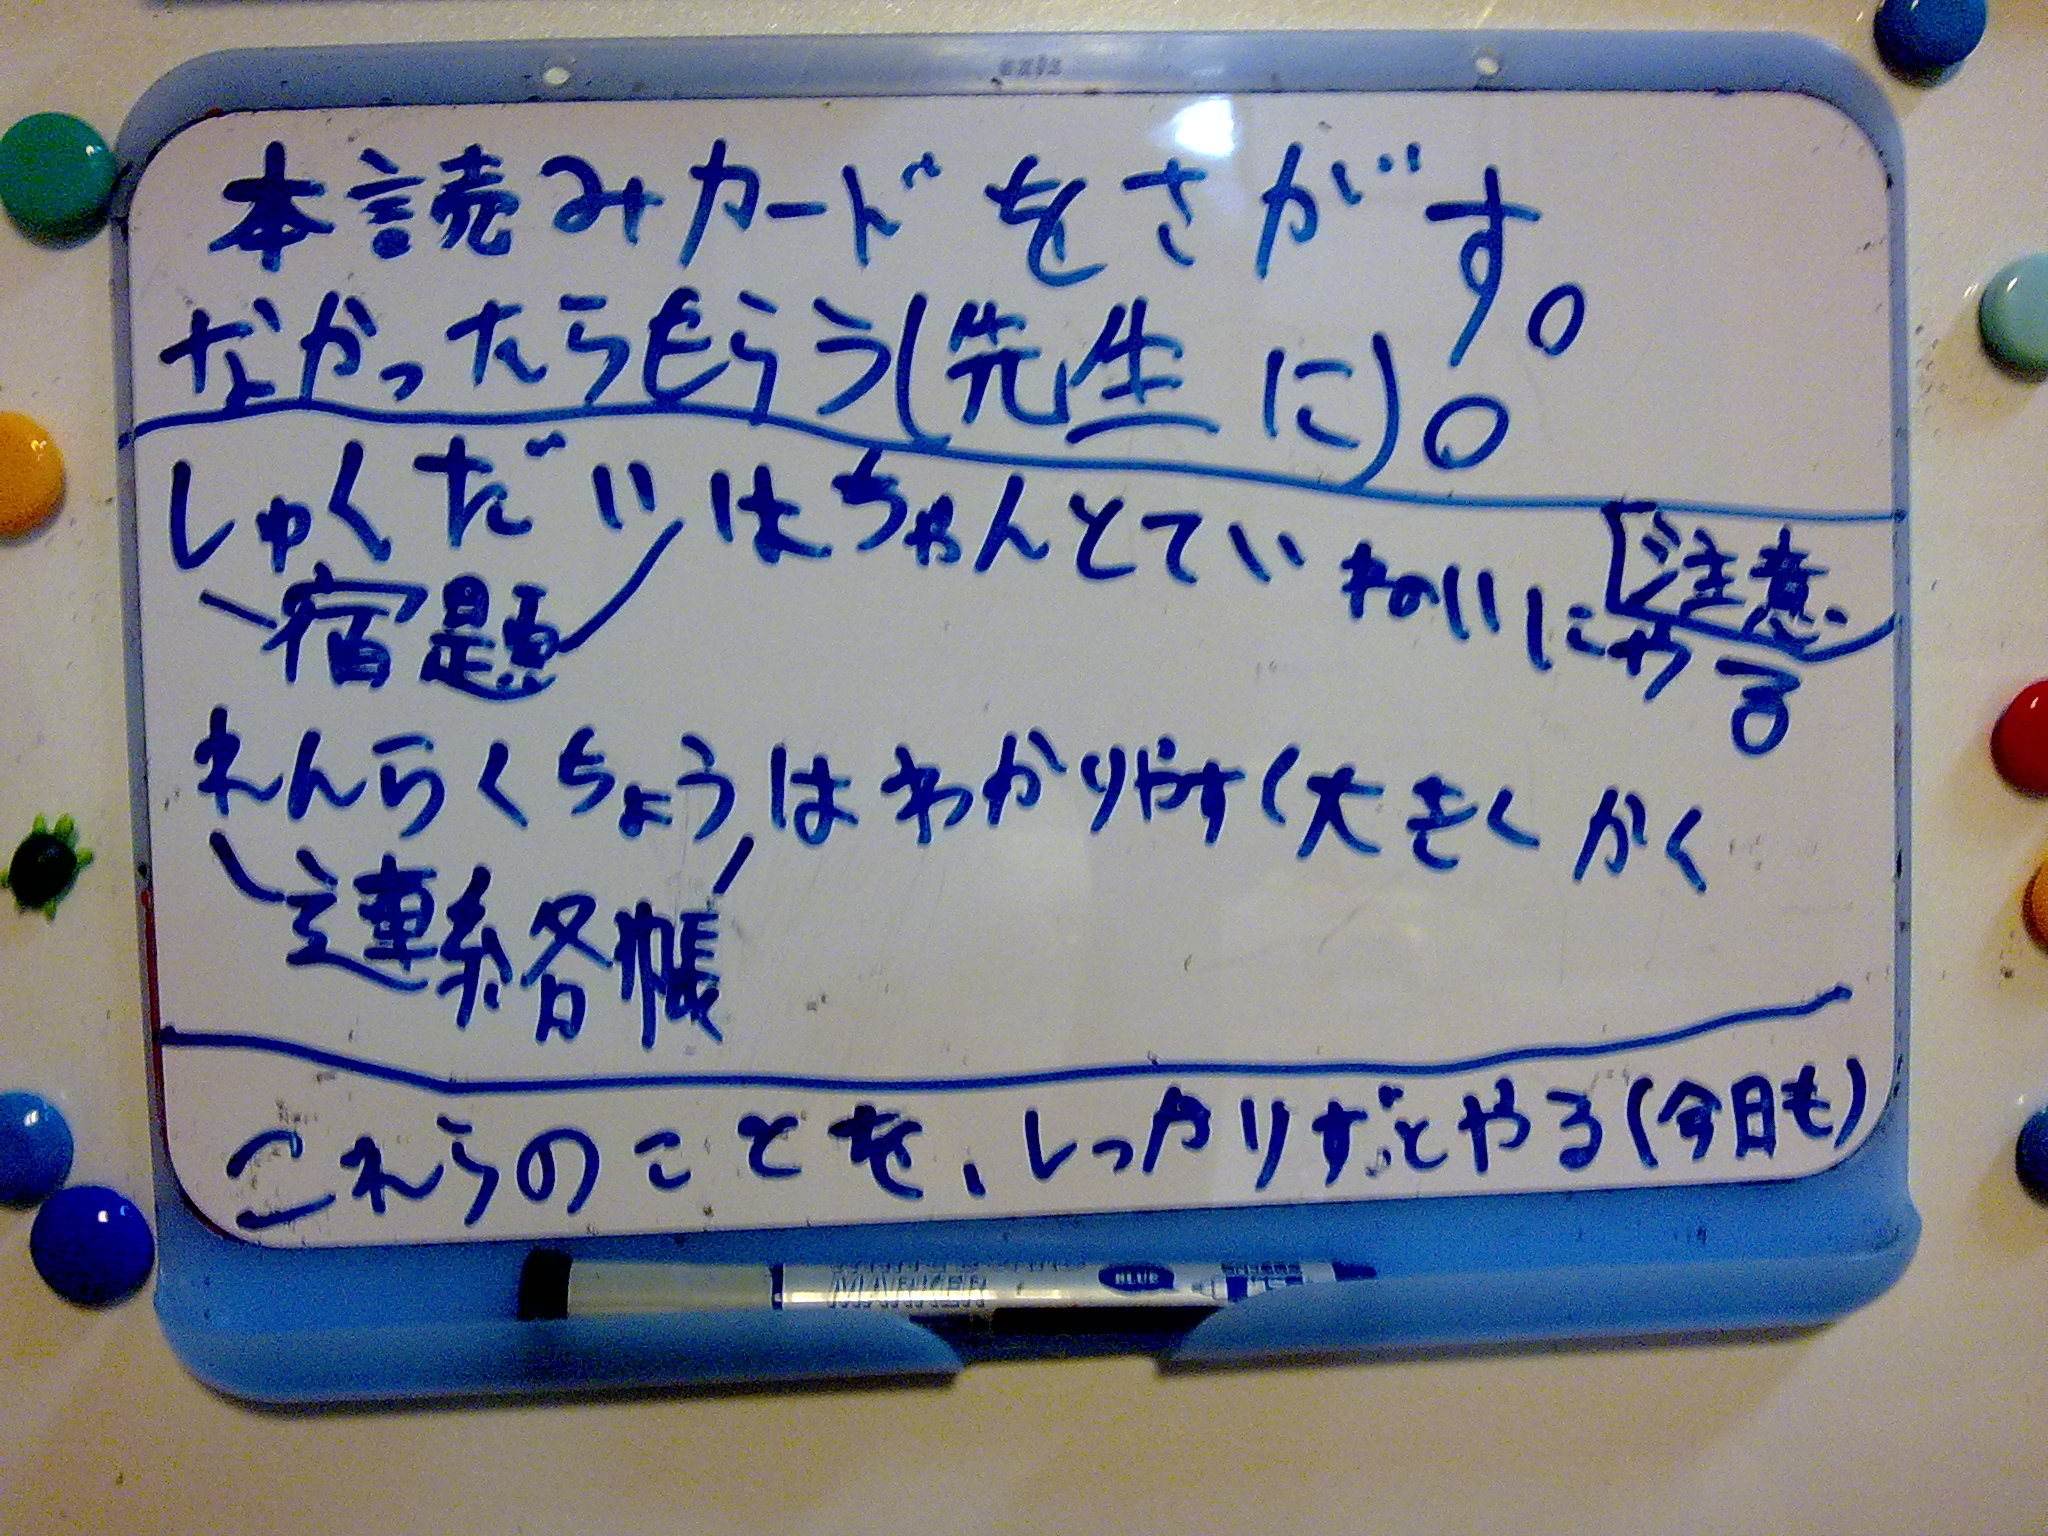 本読みカードをさがす。
なかったらもらう(先生に)。
しゅくだいはちゃんとていねいにやる
宿題
ご注意
れんらくちょうはわかりやすく大きくかく
連絡帳
これらのことを、しっかりずっとやる(今日も)
MARKER
BLUE